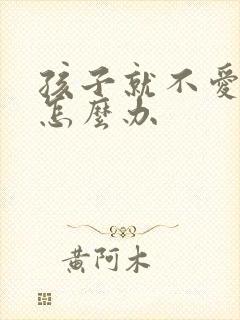 孩子就不愛
怎麼办
黄阿木